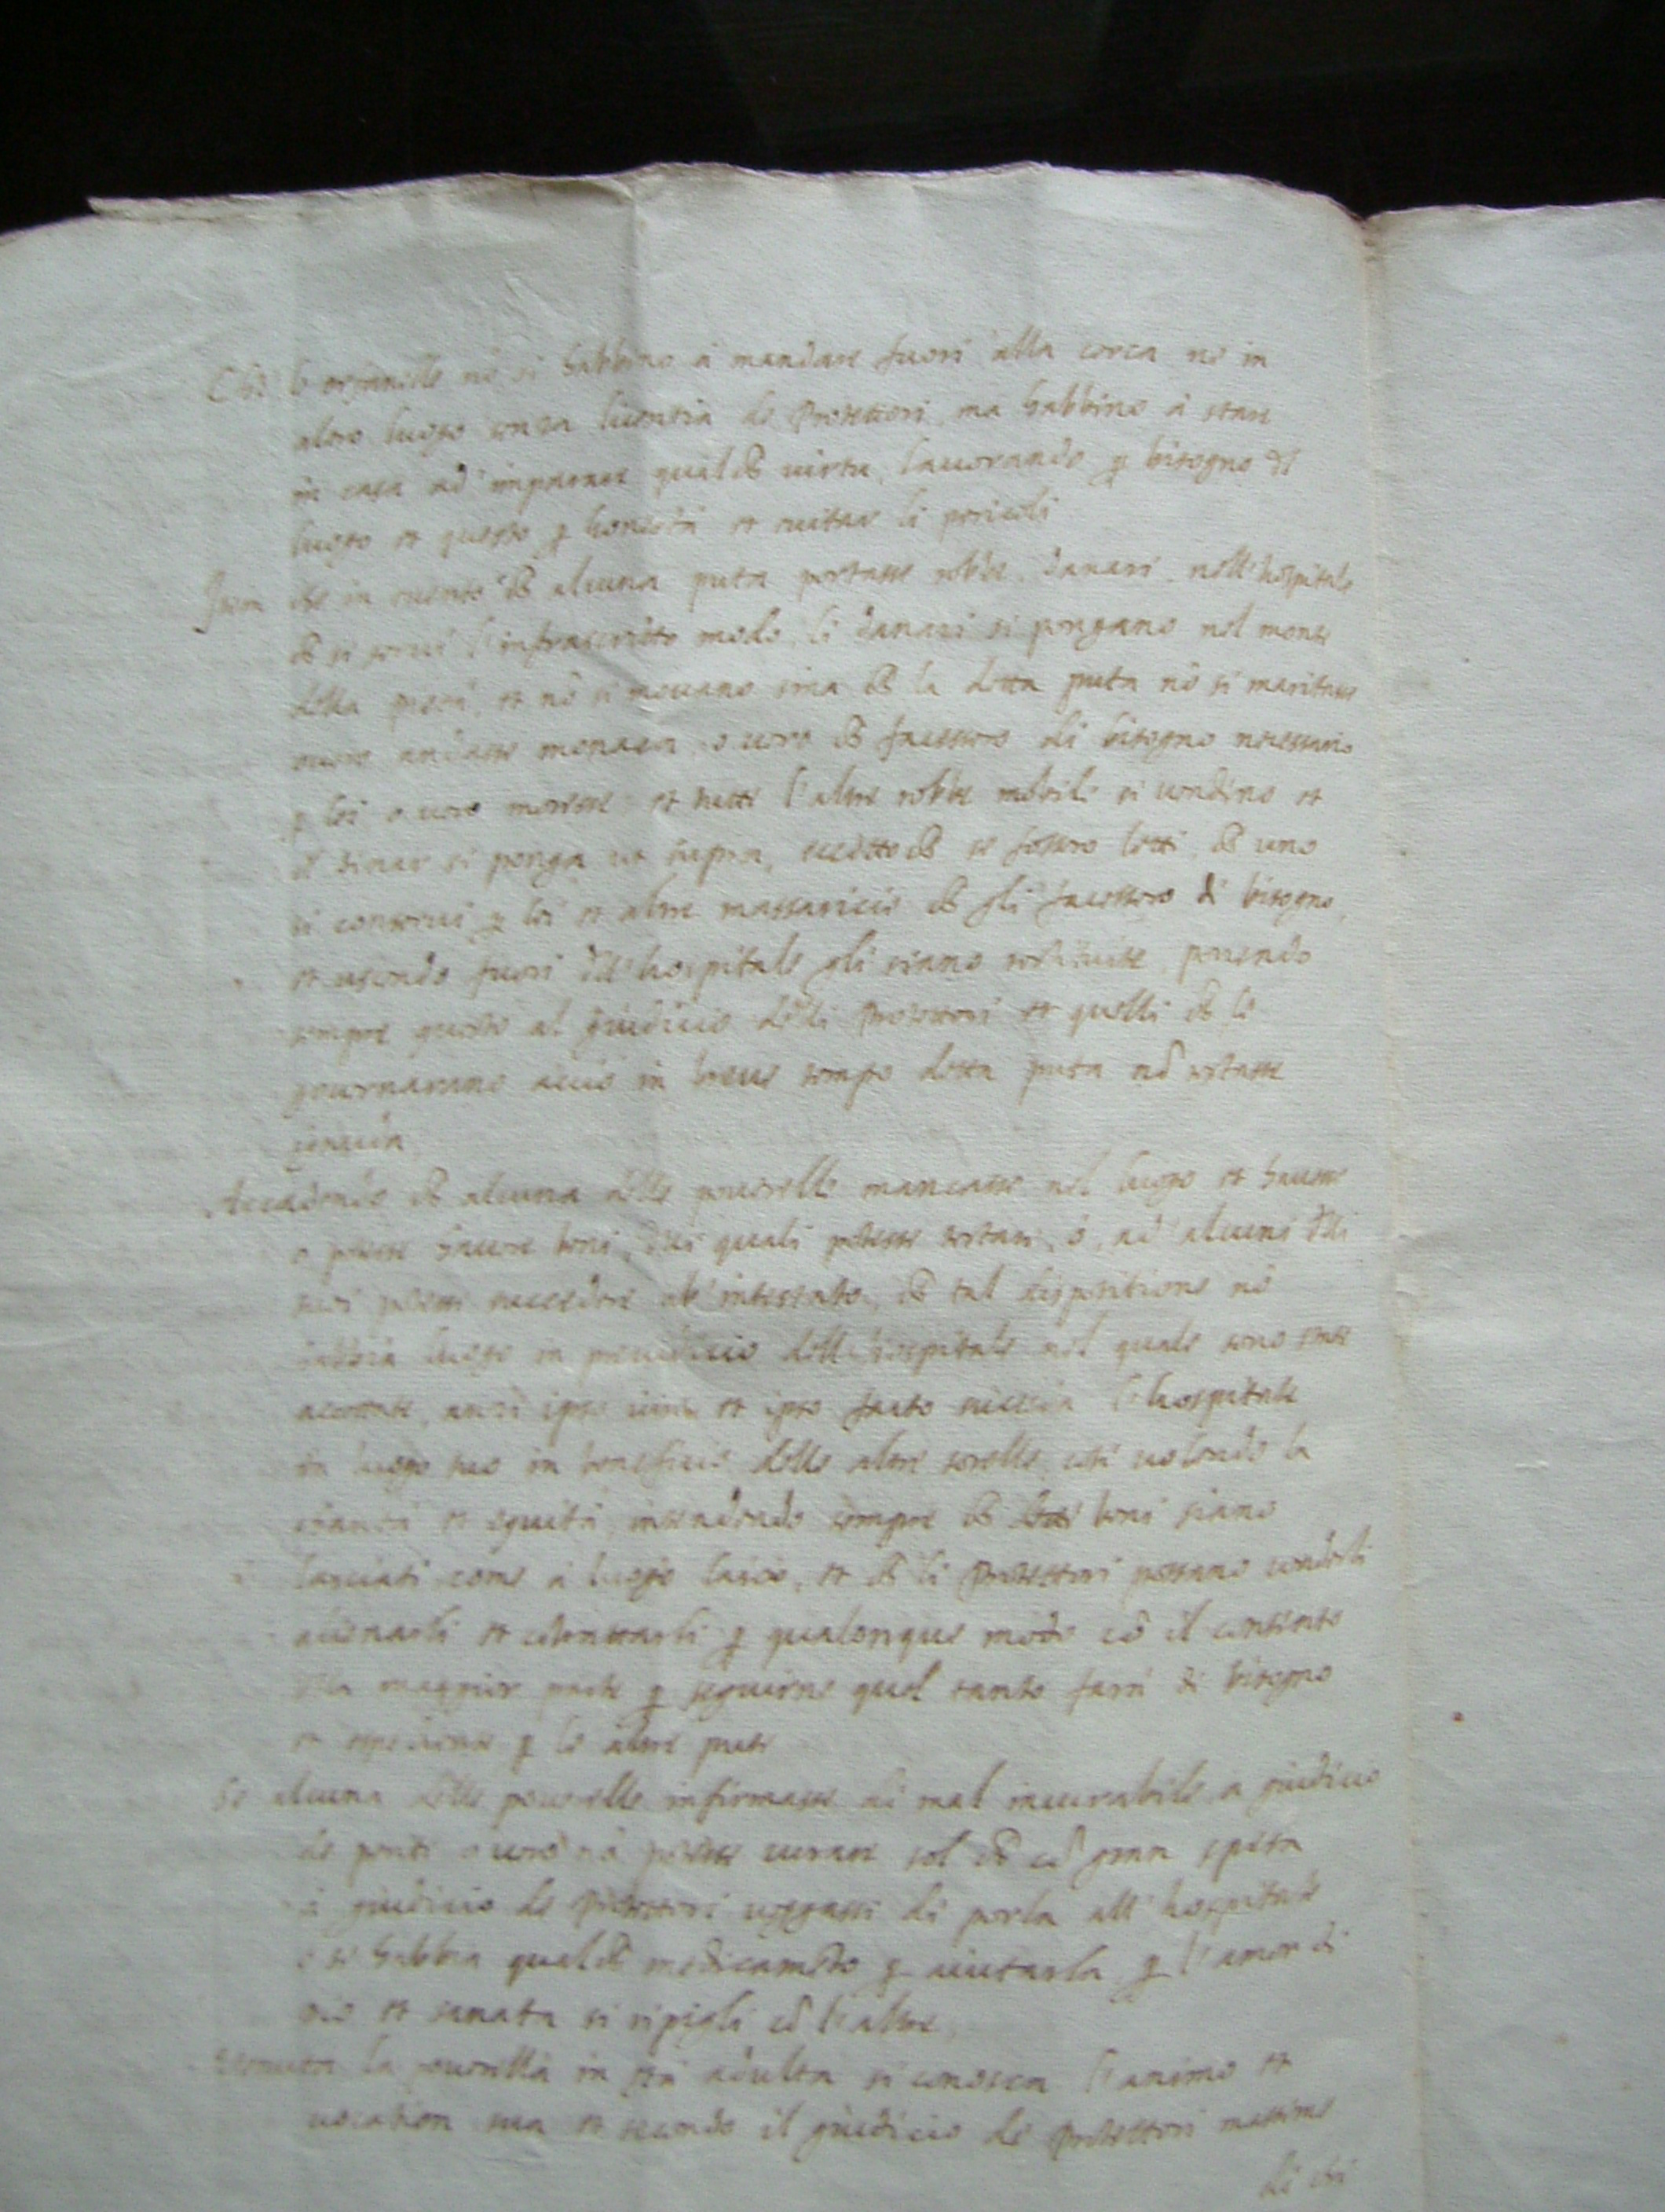 Che le orfanelle nõ si habbino à mandare fuori alla cerca ne in
altro luogo senza licentia de Protettori, ma habbino à stare
in casa ad' imparare qualche virtu, lavorando p bisogno del
luogo et questo p honestà et evitare li pericoli
Item che in evento che alcuna puta portasse robbe, danari nell'hospitale
che si servi l'infrascritto modo, li danari si pongano nel monte
della pietà, et nõ si movano sina che la detta puta nõ si maritasse
overo andasse monaca, o vero che facessero di bisogno necessario
p lei o vero moresse et tutte l'altre robbe mobile si vendino et
il dinar si ponga ut supra, eccetto che se fossero letti, che uno
si conservi p lei et altre massaricie che gli facessero di bisogno,
et uscendo fuori dell'hospitale gli siano restituite, ponendo
sempre questo al giudicio delli Protettori et quelli che le
governarano acciò in breve tempo detta puta nõ restasse

Accadendo che alcuna delle poverelle mancasse nel luogo et havesse
o potesse havere beni, dei quali potesse testari, ò, ad' alcuni delli
suoi potesse succedere ab' intestato, che tal dispositione nõ
habbia luogo in preiudicio dell'hospitale nel quale sono state
accettate, anzi ipso iure et ipso facto succeda l'hospitale
in luogo suo in beneficio delle altre sorelle, così volendo la
carità et equità, intendendo sempre che beni siano
lasciati come à luogo laico, et che li Protettori possano venderli
alienarli et contrattarli p qualonque modo cõ il consenso
della maggior parte p seguirne quel tanto farà di bisogno
et espediente p le altre pute
Se alcuna delle poverelle infirmasse di mal incurabile à giudicio
de periti o vero nõ potesse curare sol che cõ gran spesa
à giudicio de Protettori veggassi di porla all'hospitale
o si habbia qualche medicamẽto p aiutarla, p l'amor di
Dio et sanata si ripigli cõ l'altre,
Venuta la poverella in età adulta si conosca l'animo et
vocation sua et secondo il giudicio de Protettori massime
di chi